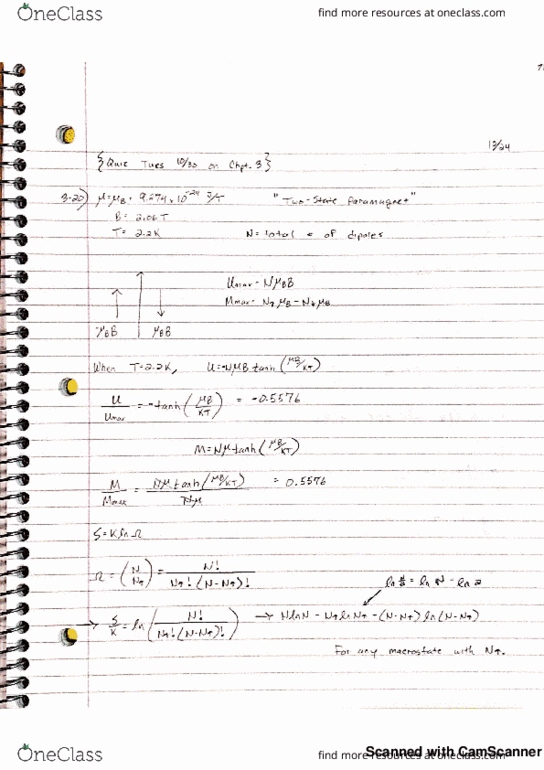 OneClass
find more resources at oneclass.com
{Quiz Tues 10/30 on Chpt. 3}
3-20) μ=μB= 9.274 x 10^-24 J/T "Two-State Paramagnet"
B= 2.06 T
T= 2.2K N= total # of dipoles
Umax = NμBB
Mmax = N↑μB - N↓μB
μBB μBB
When T=2.2K, U=-NμB tanh (μB/KT)
U/Umax = -tanh (μB/KT) = -0.5576
M=Nμ tanh (μB/KT)
M/Mmax = Nμ tanh (μB/KT) / Nμ = 0.5576
S=K ln Ω
Ω = (N N↑) = N! / N↑! (N-N↑)!
S/K = ln (N! / N↑! (N-N↑)!) → N ln N - N↑ ln N↑ - (N-N↑) ln (N-N↑)
For any macrostate with N↑.
Scanned with CamScanner
OneClass
find more resources at oneclass.com